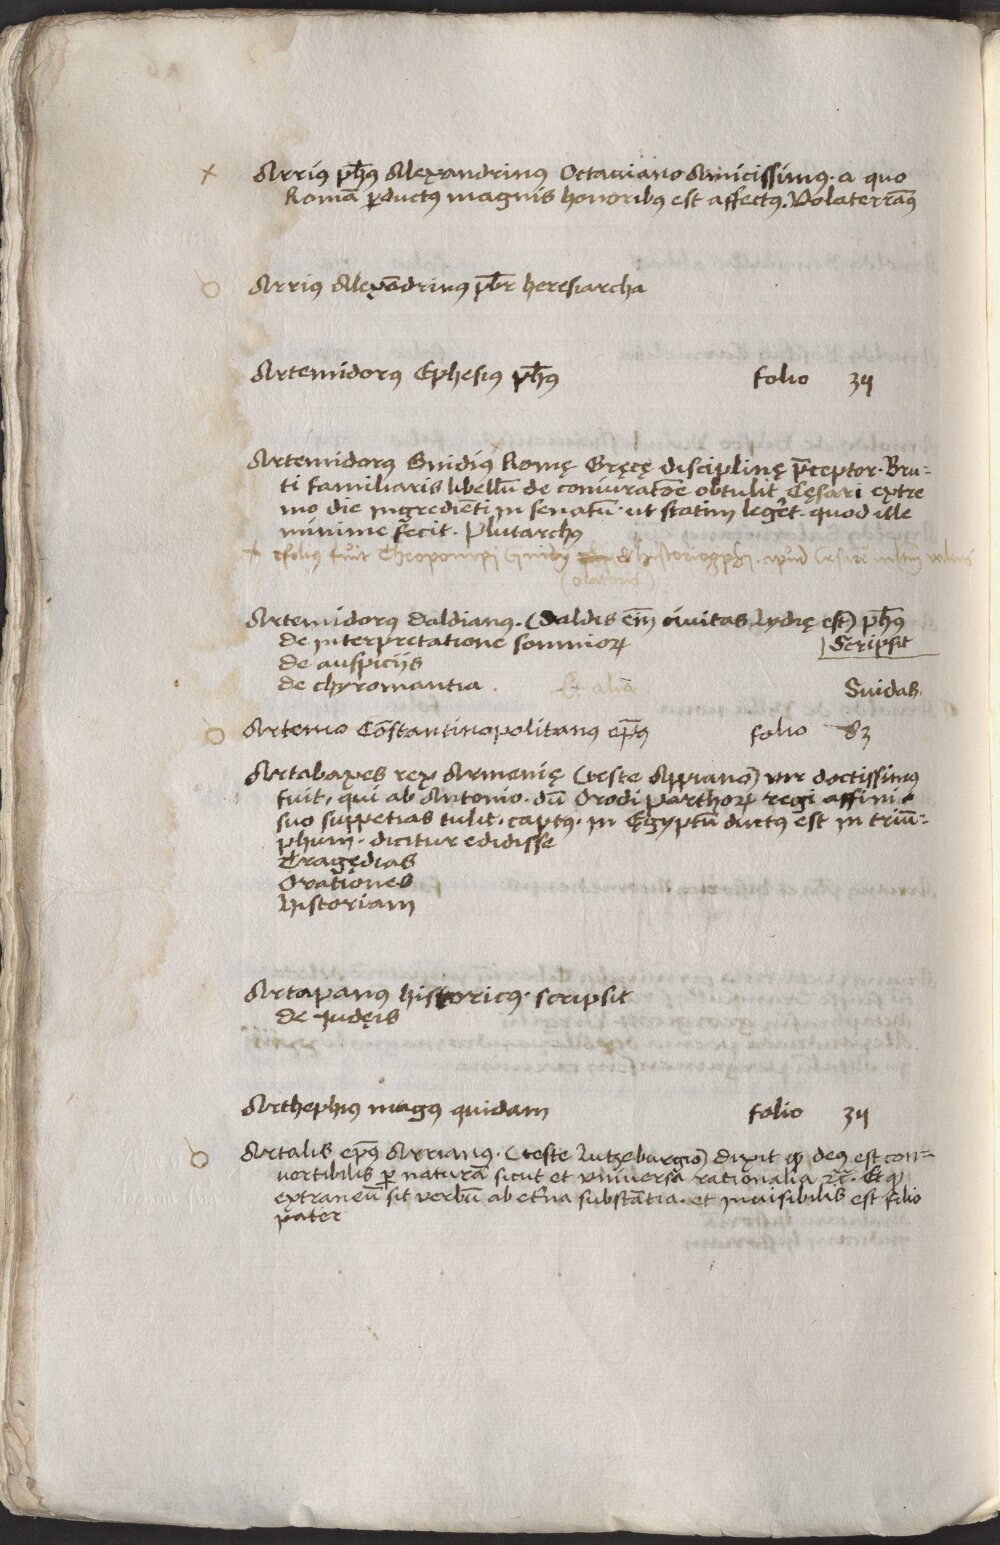 × Arrius ph̄us Alexandrinus Octauiano Amicissimus. a quo
Romā ꝑductus magnis honoribus est affectus. Volaterrāus
Arrius Alexādrinus pb̄r heresiarcha
Artemidorus Ephesius ph̄us folio 34
Artemidorus Gnidius Romę Gręcę disciplinę p̄ceptor. Bru=
ti familiaris libellū de coniuratōe obtulit Cęsari extre
mo die ingrediēti in senatū. ut statim legēt. quod ille
minime fecit. Plutarchus
fuit Theopompi Gnidij
Artemidorus Daldianus. (Daldis em̄ ciuitas Lydię est) ph̄us
de interpretatione somnioꝝ Scripsit
de auspicijs
de chyromantia. Et alia Suidas
Artemo Cōstantinopolitanus ep̄us folio 83
Artabaxes rex Armenię (teste Appiano) vir doctissimus
fuit, qui ab Antonio. dū Orodi parthoꝝ regi affini
suo suppetias tulit. captus. in Ęgyptū ductus est in triū=
phum. dicitur edidisse
Tragędias
Orationes
Historiam
Artapanus historicus. scripsit
de Judęis
Arthephius magus quidam folio 34
Artalis ep̄us Arrianus. (teste Lutzeburgio) dixit ꝙ deus est con=
uortibilis ꝑ naturā sicut et vniuersa rationalia ⁊c̄. Et ꝙ
extraneū sit verbū ab et̄na substātia. et inuisibilis est filio
pater